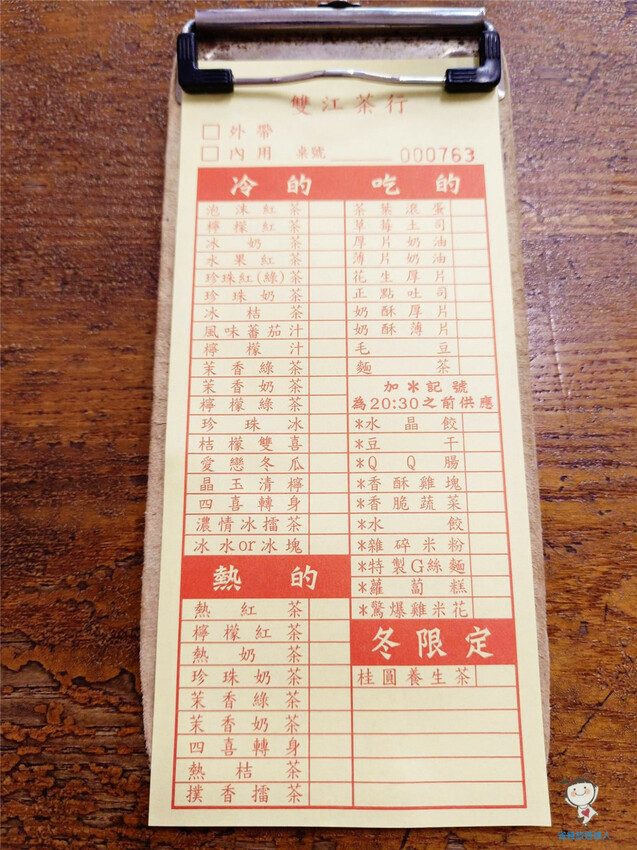 雙江茶行
□ 外帶
□ 內用 桌號 000763
冷的
泡沫紅茶
檸檬紅茶
冰奶茶
水果紅茶
珍珠紅(綠)茶
珍珠奶茶
冰桔茶
風味蕃茄汁
檸檬汁
茉香綠茶
茉香奶茶
檸檬綠茶
珍珠冰
桔檬雙喜
愛戀冬瓜
晶玉清檸
四喜轉身
濃情冰擂茶
冰水or冰塊
熱的
熱紅茶
檸檬紅茶
熱奶茶
珍珠奶茶
茉香綠茶
茉香奶茶
四喜轉身
熱桔茶
撲香擂茶
吃的
茶葉滾蛋
草莓土司
厚片奶油
薄片奶油
花生厚片
正點吐司
奶酥厚片
奶酥薄片
毛豆
麵茶
加＊記號
為20:30之前供應
*水晶餃
*豆干
*QQ腸
*香酥雞塊
*香脆蔬菜
*水餃
*雜碎米粉
*特製G絲麵
*蘿蔔糕
*驚爆雞米花
冬限定
桂圓養生茶